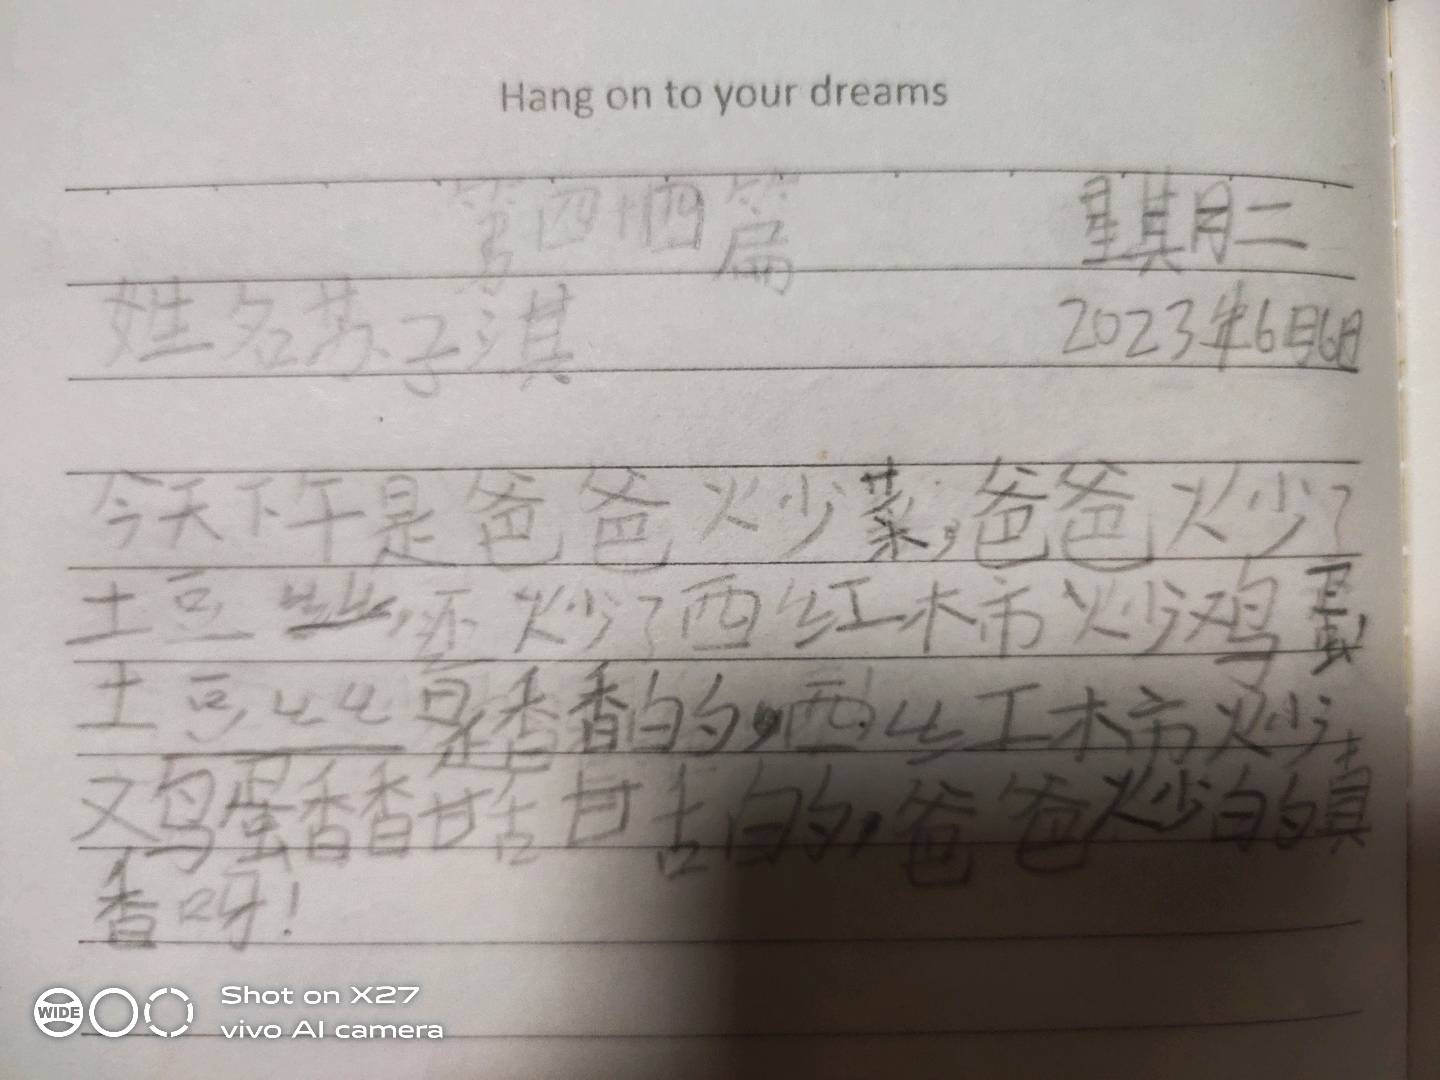 Hang on to your dreams
第四十四篇 星其月二
姓名苏子淇 2023年6月6日
今天下午是爸爸炒菜,爸爸炒了
土豆丝,还炒了西红柿炒鸡蛋,
土豆丝是香香的,西红柿炒
鸡蛋香香甜甜的,爸爸炒的真
香呀!
WIDE Shot on X27
vivo AI camera